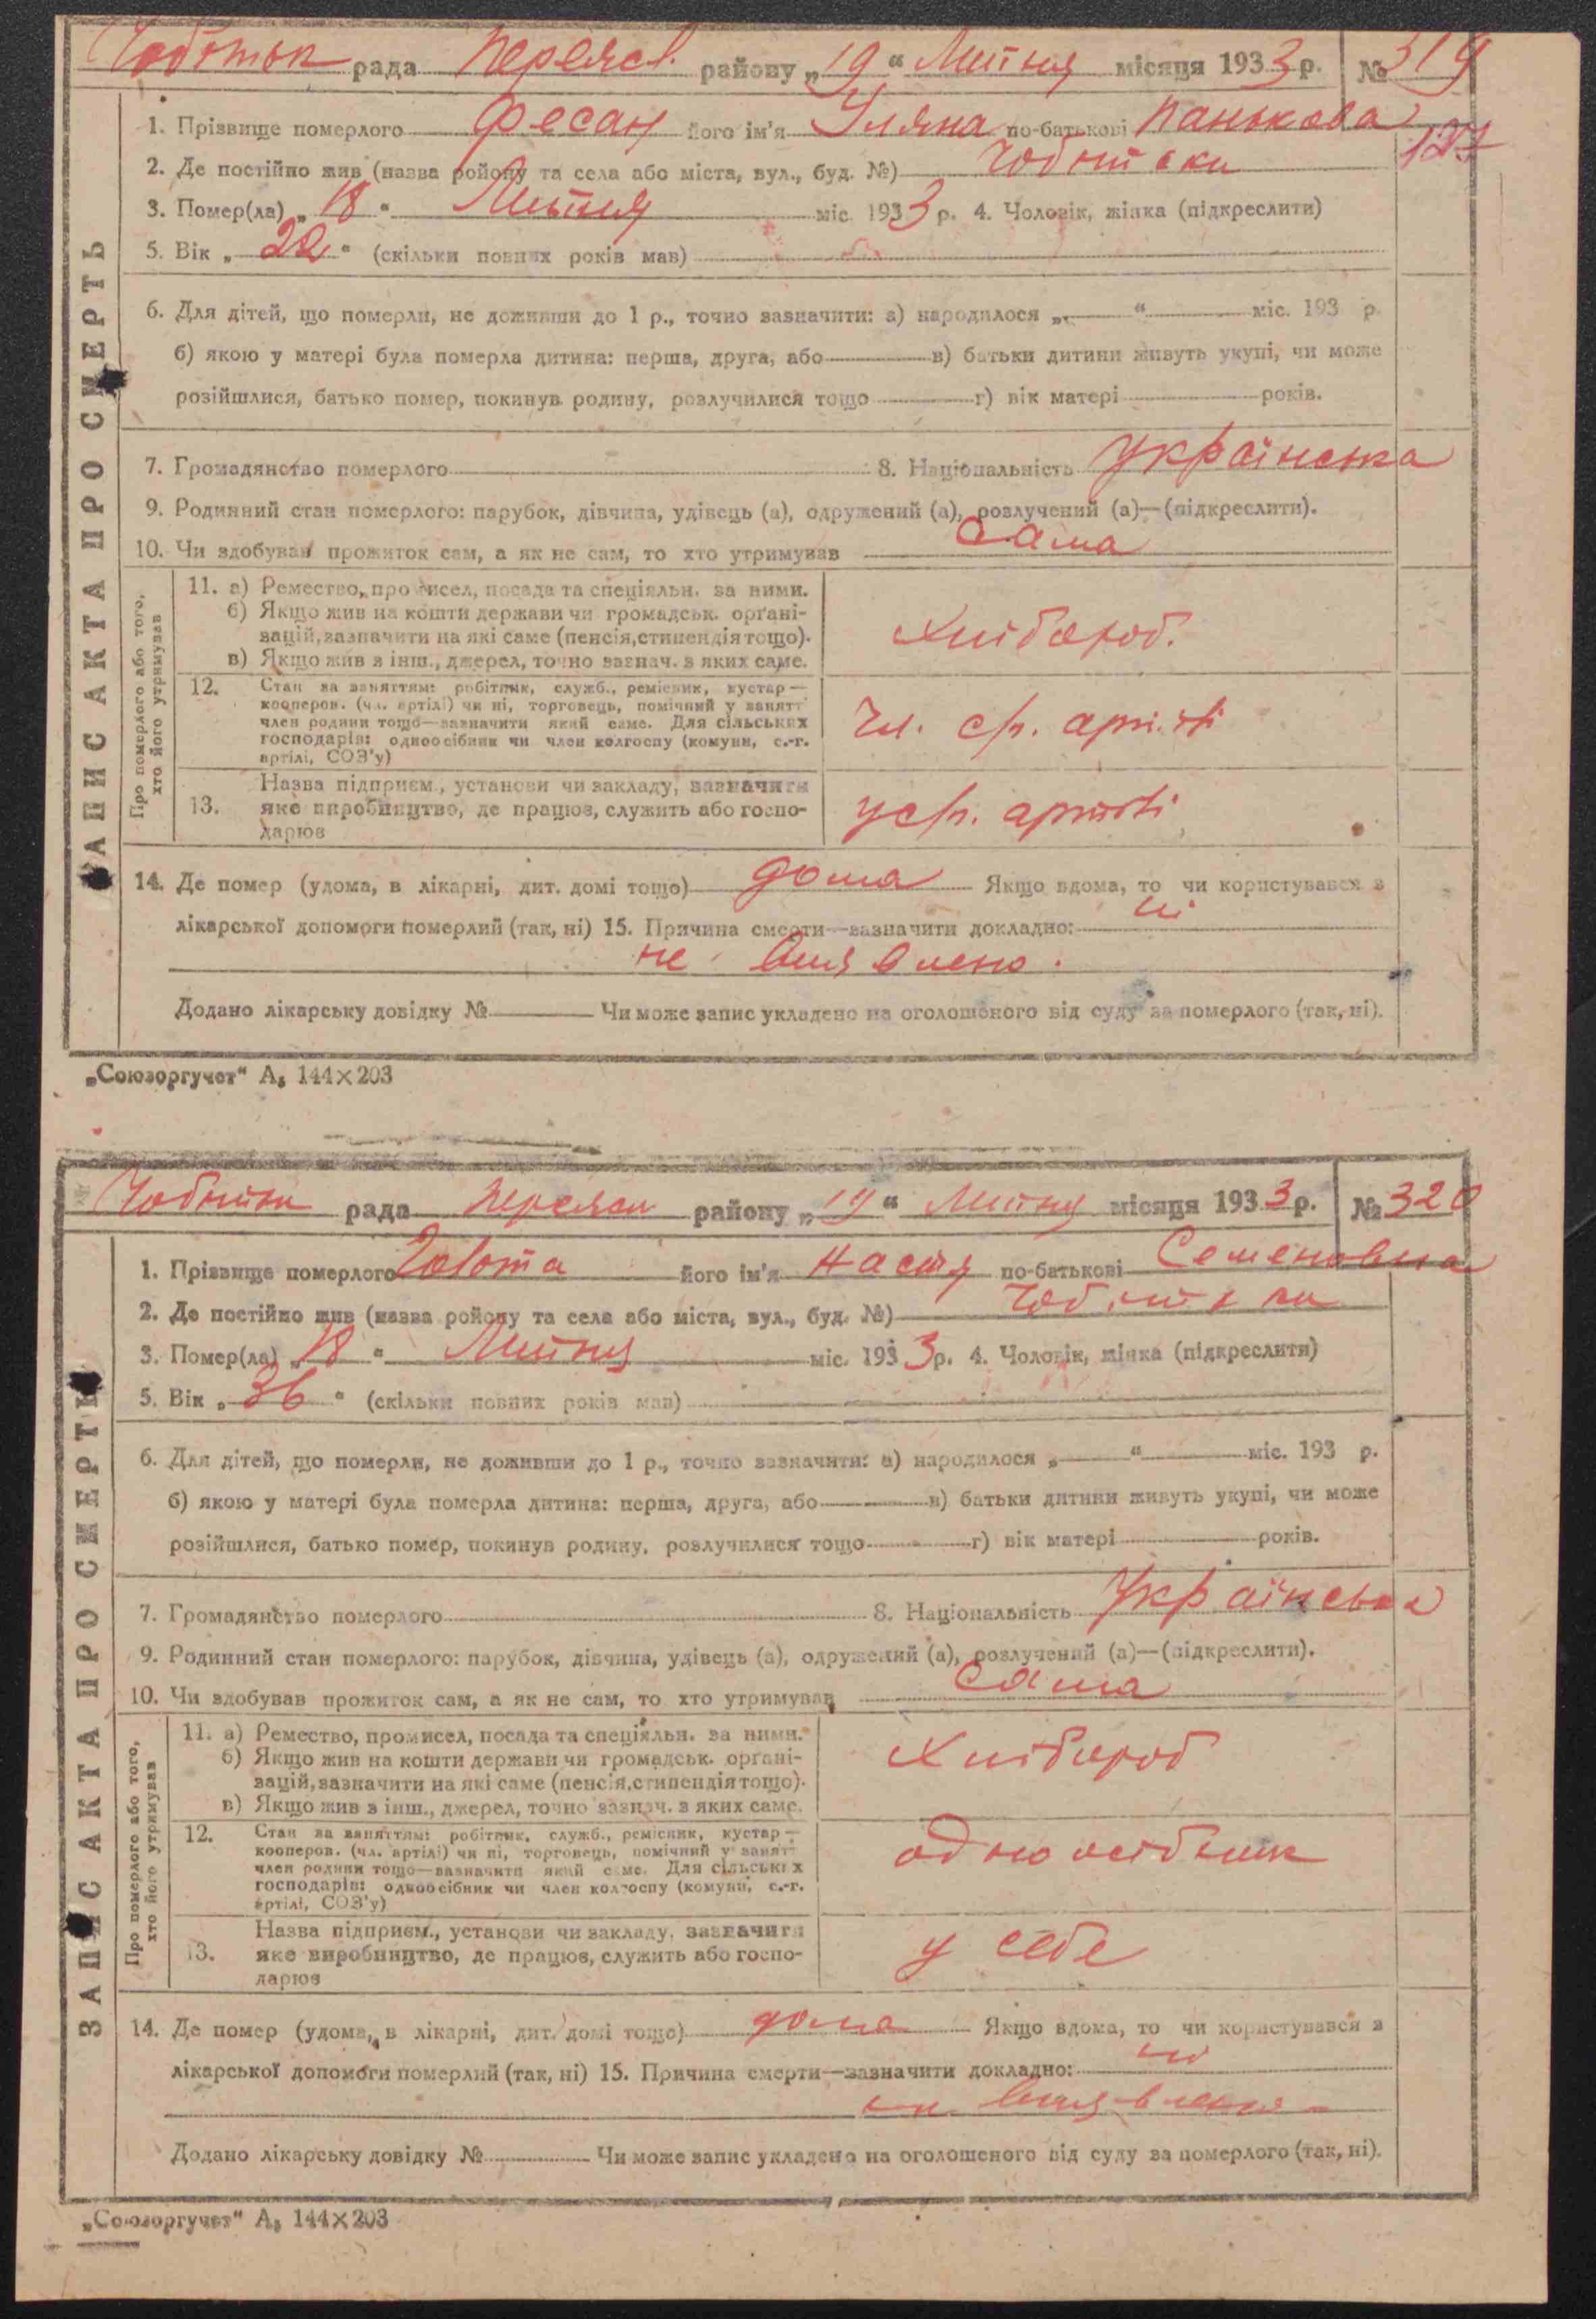 рада Переясл. району „19“ Липня місяця 1933 р. № 319
127
1. Прізвище померлого Фесан його ім'я Уляна по-батькові Панькова
2. Де постійно жив (назва ройону та села або міста, вул., буд. №) Чобітьки
3. Помер(ла) „18“ Липня міс. 1933 р. 4. Чоловік, жінка (підкреслити)
5. Вік „22“ (скільки повних років мав)
6. Для дітей, що померли, не доживши до 1 р., точно зазначити: а) народилося „ “ міс. 193 р.
б) якою у матері була померла дитина: перша, друга, або в) батьки дитини живуть укупі, чи може
розійшлися, батько помер, покинув родину, розлучилися тощо г) вік матері років.
7. Громадянство померлого 8. Національність Українська
9. Родинний стан померлого: парубок, дівчина, удівець (а), одружений (а), розлучений (а)—(підкреслити).
10. Чи здобував прожиток сам, а як не сам, то хто утримував сама
ЗАПИС АКТА ПРО СМЕРТЬ
Про померлого або того, хто його утримував
11. а) Ремество, промисел, посада та спеціяльн. за ними.
б) Якщо жив на кошти держави чи громадськ. органі-
зацій, зазначити на які саме (пенсія, стипендія тощо).
в) Якщо жив з інш., джерел, точно зазнач. з яких саме.
Хлібороб.
12. Стан за заняттям: робітник, служб., ремісник, кустар—
кооперов. (чл. артілі) чи ні, торговець, помічний у занятт
член родини тощо—зазначити який саме. Для сільських
господарів: одноосібник чи член колгоспу (комуни, с.-г.
артілі, СОЗ'у)
Чл. с/г. артілі
13. Назва підприєм., установи чи закладу, зазначити
яке виробництво, де працює, служить або госпо-
дарює
у с/г. артілі
14. Де помер (удома, в лікарні, дит. домі тощо) дома Якщо вдома, то чи користувався з
лікарської допомоги померлий (так, ні) 15. Причина смерти—зазначити докладно: ні
не виявлено.
Додано лікарську довідку № Чи може запис укладено на оголошеного від суду за померлого (так, ні).
„Союзоргучет“ А₅ 144×203
рада Переясл району „19“ Липня місяця 1933 р. № 320
1. Прізвище померлого Голота його ім'я Настя по-батькові Семеновна
2. Де постійно жив (назва ройону та села або міста, вул., буд. №) Чобітьки
3. Помер(ла) „18“ Липня міс. 1933 р. 4. Чоловік, жінка (підкреслити)
5. Вік „36“ (скільки повних років мав)
6. Для дітей, що померли, не доживши до 1 р., точно зазначити: а) народилося „ “ міс. 193 р.
б) якою у матері була померла дитина: перша, друга, або в) батьки дитини живуть укупі, чи може
розійшлися, батько помер, покинув родину, розлучилися тощо г) вік матері років.
7. Громадянство померлого 8. Національність Українська
9. Родинний стан померлого: парубок, дівчина, удівець (а), одружений (а), розлучений (а)—(підкреслити).
10. Чи здобував прожиток сам, а як не сам, то хто утримував сама
ЗАПИС АКТА ПРО СМЕРТЬ
Про померлого або того, хто його утримував
11. а) Ремество, промисел, посада та спеціяльн. за ними.
б) Якщо жив на кошти держави чи громадськ. органі-
зацій, зазначити на які саме (пенсія, стипендія тощо).
в) Якщо жив з інш., джерел, точно зазнач. з яких саме.
Хлібороб
12. Стан за заняттям: робітник, служб., ремісник, кустар—
кооперов. (чл. артілі) чи ні, торговець, помічний у занятт
член родини тощо—зазначити який саме. Для сільських
господарів: одноосібник чи член колгоспу (комуни, с.-г.
артілі, СОЗ'у)
одноосібник
13. Назва підприєм., установи чи закладу, зазначити
яке виробництво, де працює, служить або госпо-
дарює
у себе
14. Де помер (удома, в лікарні, дит. домі тощо) дома Якщо вдома, то чи користувався з
лікарської допомоги померлий (так, ні) 15. Причина смерти—зазначити докладно: ні
не виявлено
Додано лікарську довідку № Чи може запис укладено на оголошеного від суду за померлого (так, ні).
„Союзоргучет“ А₅ 144×203